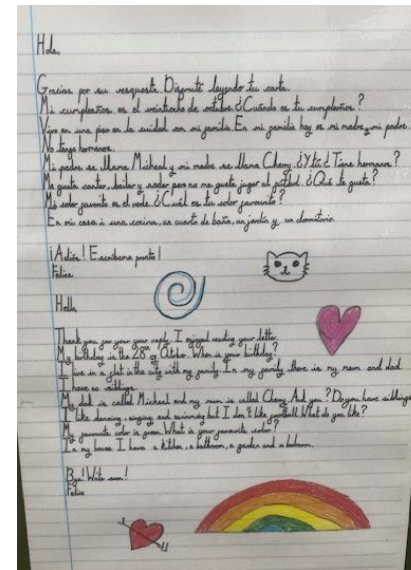 Hola,
Gracias por su respuesta. Disfruté leyendo tu carta.
Mi cumpleaños es el veintiocho de octubre. ¿Cuándo es tu cumpleaños?
Vivo en una piso en la cuidad con mi familia. En mi familia hay es mi madre y mi padre.
No tengo hermanos.
Mi padre se llama Micheal y mi madre se llama Cheny. ¿Y tú? ¿Tiene hermanos?
Me gusta cantar, bailar y nadar pero no me gusta jugar al fútbol. ¿Qué te gusta?
Mi color favorito es el verde. ¿Cuál es tu color favourito?
En mi casa i una cocina, un cuarto de baño, un jardín y un dormitorio.
¡Adiós! Escríbeme pronto!
Felice
Hello,
Thank you for your reply. I enjoyed reading your letter.
My birthday is the 28th of October. When is your birthday?
I live in a flat in the city with my family. In my family there is my mum and dad
I have no siblings.
My dad is called Michael and my mum is called Cheny. And you? Do you have siblings
I like dancing, singing and swimming but I don't like football. What do you like?
My favourite color is green. What is your favourite color?
In my house I have a kitchen, a bathroom, a garden and a bedroom.
Bye! Write soon!
Felice